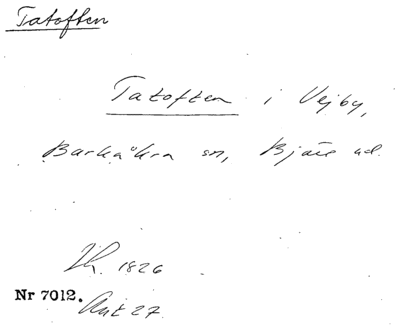 Tatoften
Tatoften i Vejby,
Barkåkra sn, Bjäre hd.
1826
Nr 7012.
Akt 27